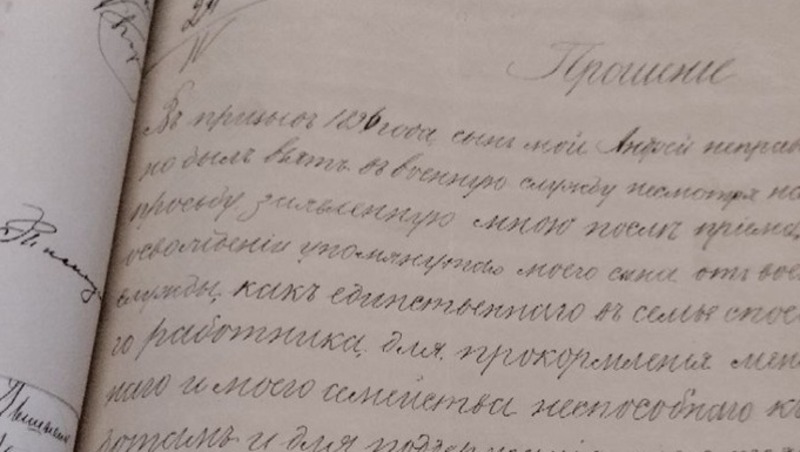 24
IV
Прошеніе
Въ призывъ 1896 года, сынъ мой Андрей неправ
но былъ взятъ въ военную службу несмотря на
просьбу, заявленную мною послѣ пріема,
освобожденіи упомянутаго моего сына отъ вое
службы, какъ единственнаго въ семьѣ спосо
го работника, для прокормленія мен
наго и моего семейства неспособнаго къ
ботамъ и для поддер